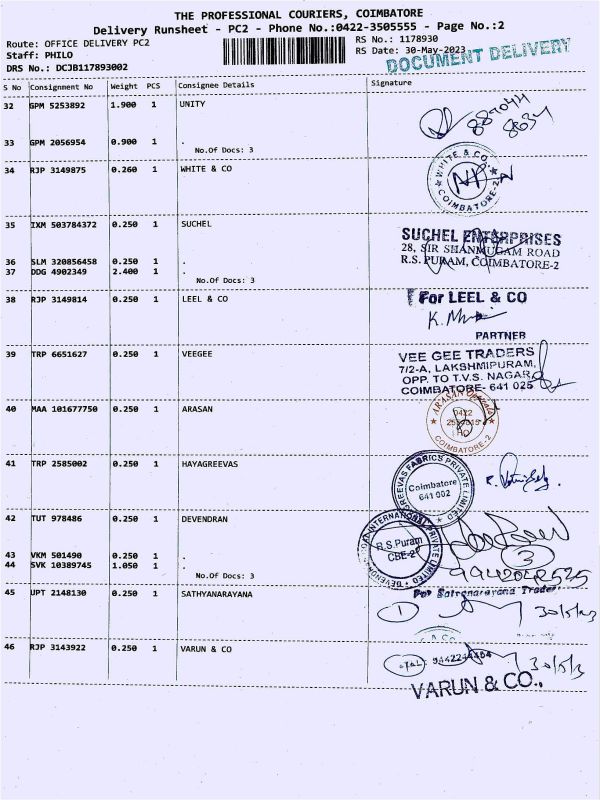 THE PROFESSIONAL COURIERS, COIMBATORE
Delivery Runsheet - PC2 - Phone No.:0422-3505555 - Page No.:2
Route: OFFICE DELIVERY PC2
RS No.: 1178930
Staff: PHILO
RS Date: 30-May-2023
DOCUMENT DELIVERY
DRS No.: DCJB117893002
S No Consignment No Weight PCS Consignee Details Signature
32 GPM 5253892 1.900 1 UNITY
33 GPM 2056954 0.900 1 .
No.Of Docs: 3
34 RJP 3149875 0.260 1 WHITE & CO
WHITE & CO. COIMBATORE-2
35 IXM 503784372 0.250 1 SUCHEL
SUCHEL ENTERPRISES
28, SIR SHANMUGAM ROAD
R.S. PURAM, COIMBATORE-2
36 SLM 320856458 0.250 1 .
37 DDG 4902349 2.400 1 .
No.Of Docs: 3
38 RJP 3149814 0.250 1 LEEL & CO
For LEEL & CO
PARTNER
39 TRP 6651627 0.250 1 VEEGEE
VEE GEE TRADERS
7/2-A, LAKSHMIPURAM,
OPP. TO T.V.S. NAGAR
COIMBATORE- 641 025
40 MAA 101677750 0.250 1 ARASAN
ARASAN
0422
COIMBATORE-2
41 TRP 2585002 0.250 1 HAYAGREEVAS
FABRICS PRIVATE LIMITED
Coimbatore
641 002
42 TUT 978486 0.250 1 DEVENDRAN
INTERNATIONAL PRIVATE LIMITED
R.S.Puram
CBE-2
3
43 VKM 501490 0.250 1 .
44 SVK 10389745 1.050 1 .
No.Of Docs: 3
45 UPT 2148130 0.250 1 SATHYANARAYANA
For Satyanarayana Trader
1
30/5/23
46 RJP 3143922 0.250 1 VARUN & CO
30/5/23
VARUN & CO.,